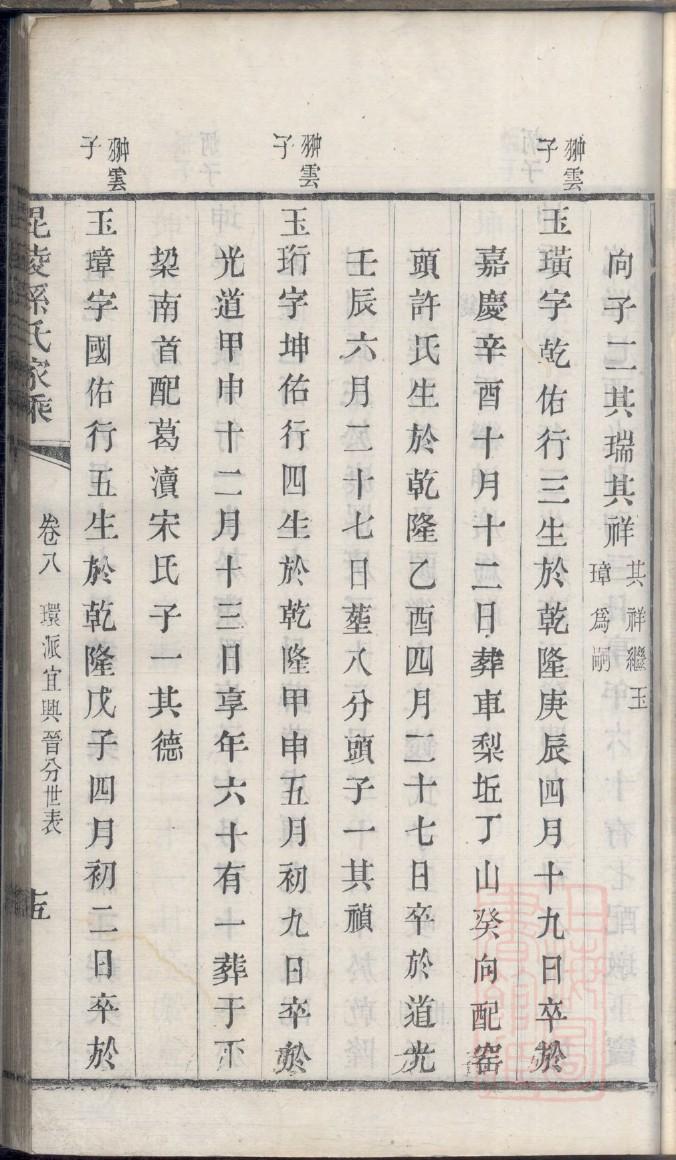 向子二其瑞其祥其祥繼玉璋爲嗣
翀雲子
玉璜字乾佑行三生於乾隆庚辰四月十九日卒於
嘉慶辛酉十月十二日葬車梨坵丁山癸向配窑
頭許氏生於乾隆乙酉四月二十七日卒於道光
壬辰六月二十七日塟八分頭子一其禎
翀雲子
玉珩字坤佑行四生於乾隆甲申五月初九日卒於
光道甲申十二月十三日享年六十有一葬于下
梁南首配葛瀆宋氏子一其德
翀雲子
玉璋字國佑行五生於乾隆戊子四月初二日卒於
毘陵孫氏家乘
卷八
環派宜興晉分世表